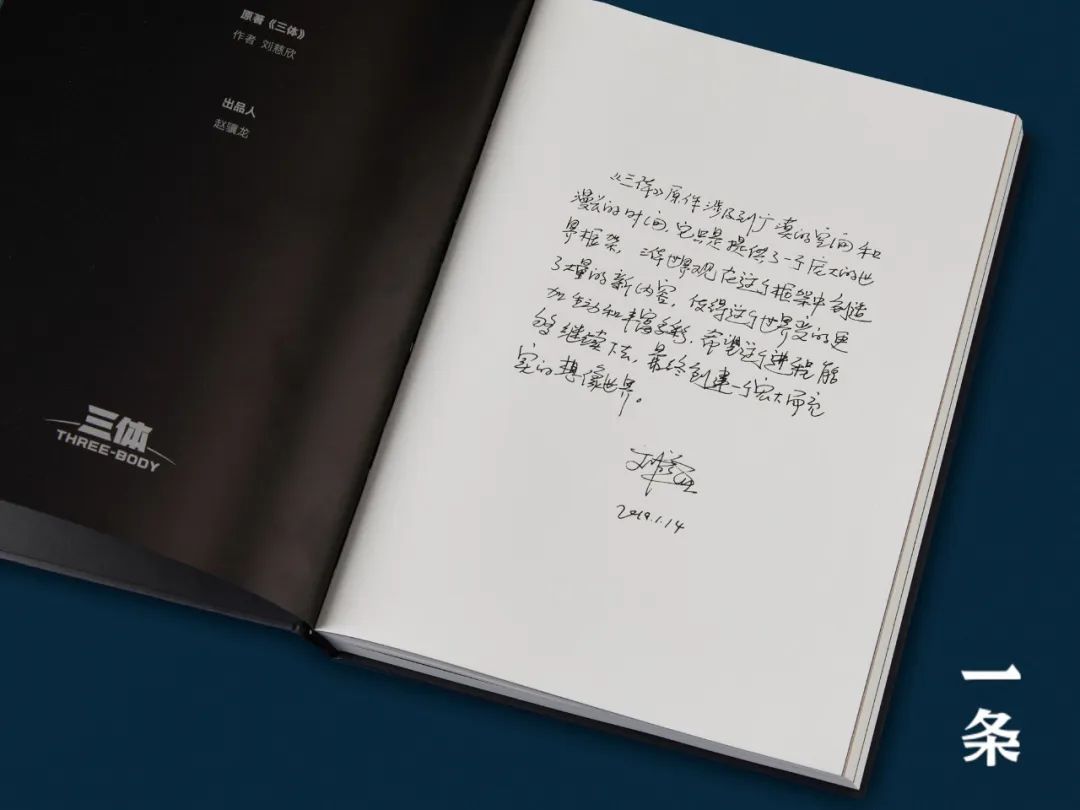 原著《三体》
作者 刘慈欣
出品人
赵骥龙
三体
THREE-BODY
《三体》原作涉及到广漠的空间和
漫长的时间，它只是提供了一个庞大的世
界框架，三体世界观在这个框架中创造
了大量的新内容，使得这个世界变的更
加生动和丰富多彩，希望这个进程能
够继续下去，最终创建一个宏大而充
实的想像世界。
刘慈欣
2019.1.14
一条